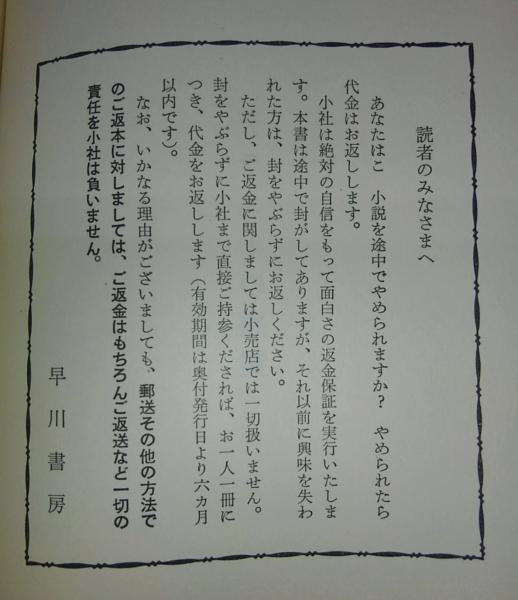 読者のみなさまへ
あなたはこ　小説を途中でやめられますか？　やめられたら
代金はお返しします。
小社は絶対の自信をもって面白さの返金保証を実行いたしま
す。本書は途中で封がしてありますが、それ以前に興味を失わ
れた方は、封をやぶらずにお返しください。
ただし、ご返金に関しましては小売店では一切扱いません。
封をやぶらずに小社まで直接ご持参くだされば、お一人一冊に
つき、代金をお返しします（有効期間は奥付発行日より六ヵ月
以内です）。
なお、いかなる理由がございましても、郵送その他の方法で
のご返本に対しましては、ご返金はもちろんご返送など一切の
責任を小社は負いません。
早川書房